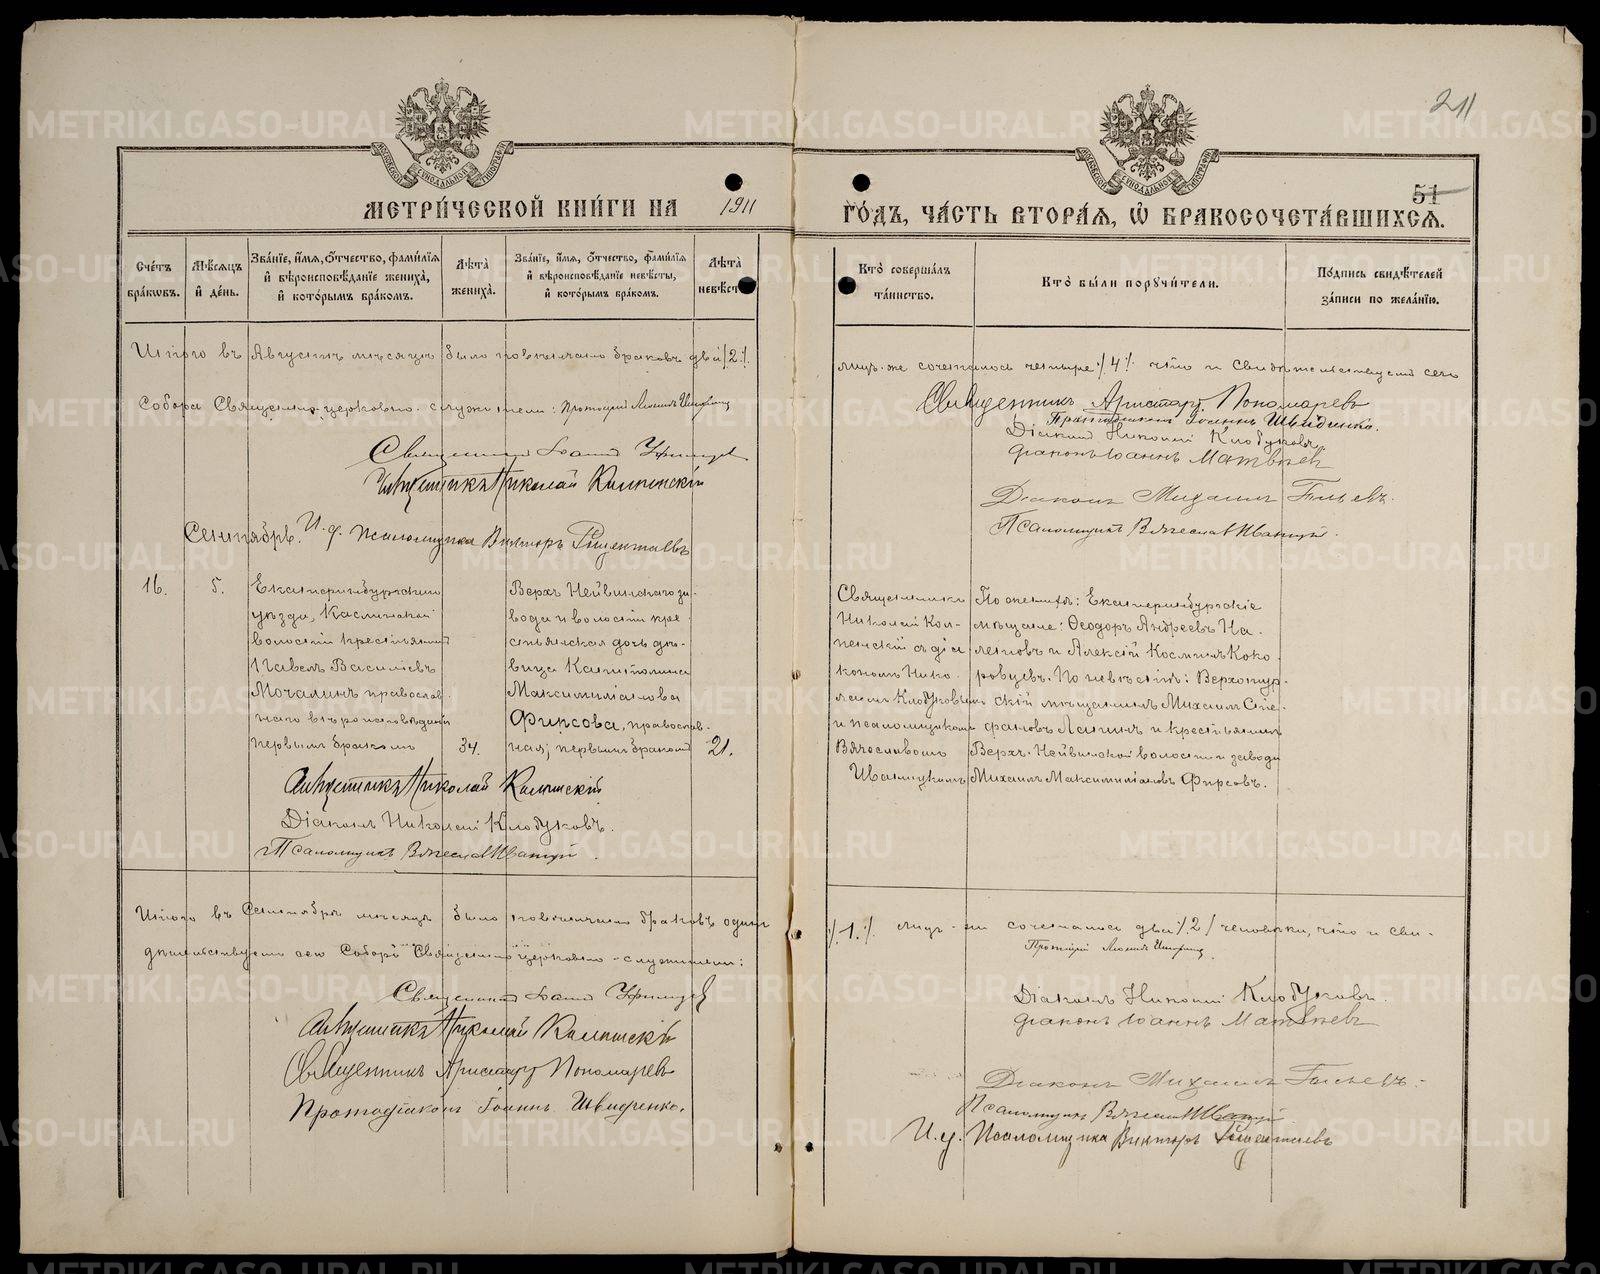 211
51
МЕТРИ́ЧЕСКОЙ КНИ́ГИ НА 1911 ГО́ДЪ, ЧА́СТЬ ВТОРА́Я, Ѡ҆ БРАКОСОЧЕТА́ВШИХСЯ.
Сче́тъ бра́кѡвъ.
Мѣ́сяцъ и҆ де́нь.
Зва́нїе, и҆́мя, ѻ҆́тчество, фами́лїя и҆ вѣроисповѣ́данїе жениха̀, и҆ кото́рымъ бра́комъ.
Лѣ́та жениха̀.
Зва́нїе, и҆́мя, ѻ҆́тчество, фами́лїя и҆ вѣроисповѣ́данїе невѣ́сты, и҆ кото́рымъ бра́комъ.
Лѣ́та невѣ́ст
Кто̀ соверша́лъ та́инство.
Кто̀ бы́ли порꙋчи́тели.
По́дпись свидѣ́телей за́писи по жела́нїю.
Итого въ Августѣ мѣсяцѣ было повѣнчано браковъ два /2/.
лицъ-же сочеталось четыре /4/. что и свидѣтельствуемъ сего
Собора Священно-церковно-служители: Протоіерей
Священникъ Аристархъ Пономаревъ
Протодіаконъ Іоаннъ Швидченко.
Діаконъ Николай Клобуковъ
Діаконъ Іоаннъ Матвѣевъ
Священникъ Іоаннъ
Священникъ Николай
Діаконъ Михаилъ
Псаломщикъ Вячеславъ Иваницкій.
Сентябрь.
И. д. Псаломщика Викторъ
16.
5.
Екатеринбургскаго
уѣзда, Каслинской
волости крестьянинъ
Павелъ Василіевъ
Мочалинъ православ-
наго вѣроисповѣданія
первымъ бракомъ
34.
Верхъ-Нейвинскаго за-
вода и волости кре-
стьянская дочь дѣ-
вица Капитолина
Максимиліанова
Фирсова, православ-
ная, первымъ бракомъ
21.
Священникъ
Николай Кол-
пенскій съ діа-
кономъ Нико-
лаемъ Клобуковымъ
и псаломщикомъ
Вячеславомъ
Иваницкимъ
По женихѣ: Екатеринбургскіе
мѣщане: Ѳеодоръ Андреевъ На-
летовъ и Алексій Космичъ Коко-
ровцевъ. По невѣстѣ: Верхотур-
скій мѣщанинъ Михаилъ Сте-
фановъ Лапинъ и крестьянинъ
Верхъ-Нейвинской волости и завода
Михаилъ Максимиліановъ Фирсовъ.
Священникъ Николай
Діаконъ Николай Клобуковъ.
Псаломщикъ Вячеславъ Иваницкій.
Итого въ Сентябрѣ мѣсяцѣ было повѣнчано браковъ одинъ
/1./ лицъ-же сочеталось два /2/ человѣка, что и сви-
дѣтельствуемъ сего Собора Священно-церковно-служители:
Протоіерей
Священникъ Іоаннъ
Священникъ Николай
Священникъ Аристархъ Пономаревъ
Протодіаконъ Іоаннъ Швидченко.
Діаконъ Николай Клобуковъ.
Діаконъ Іоаннъ Матвѣевъ
Діаконъ Михаилъ
Псаломщикъ Вячеславъ Иваницкій
И. д. Псаломщика Викторъ
METRIKI.GASO-URAL.RU